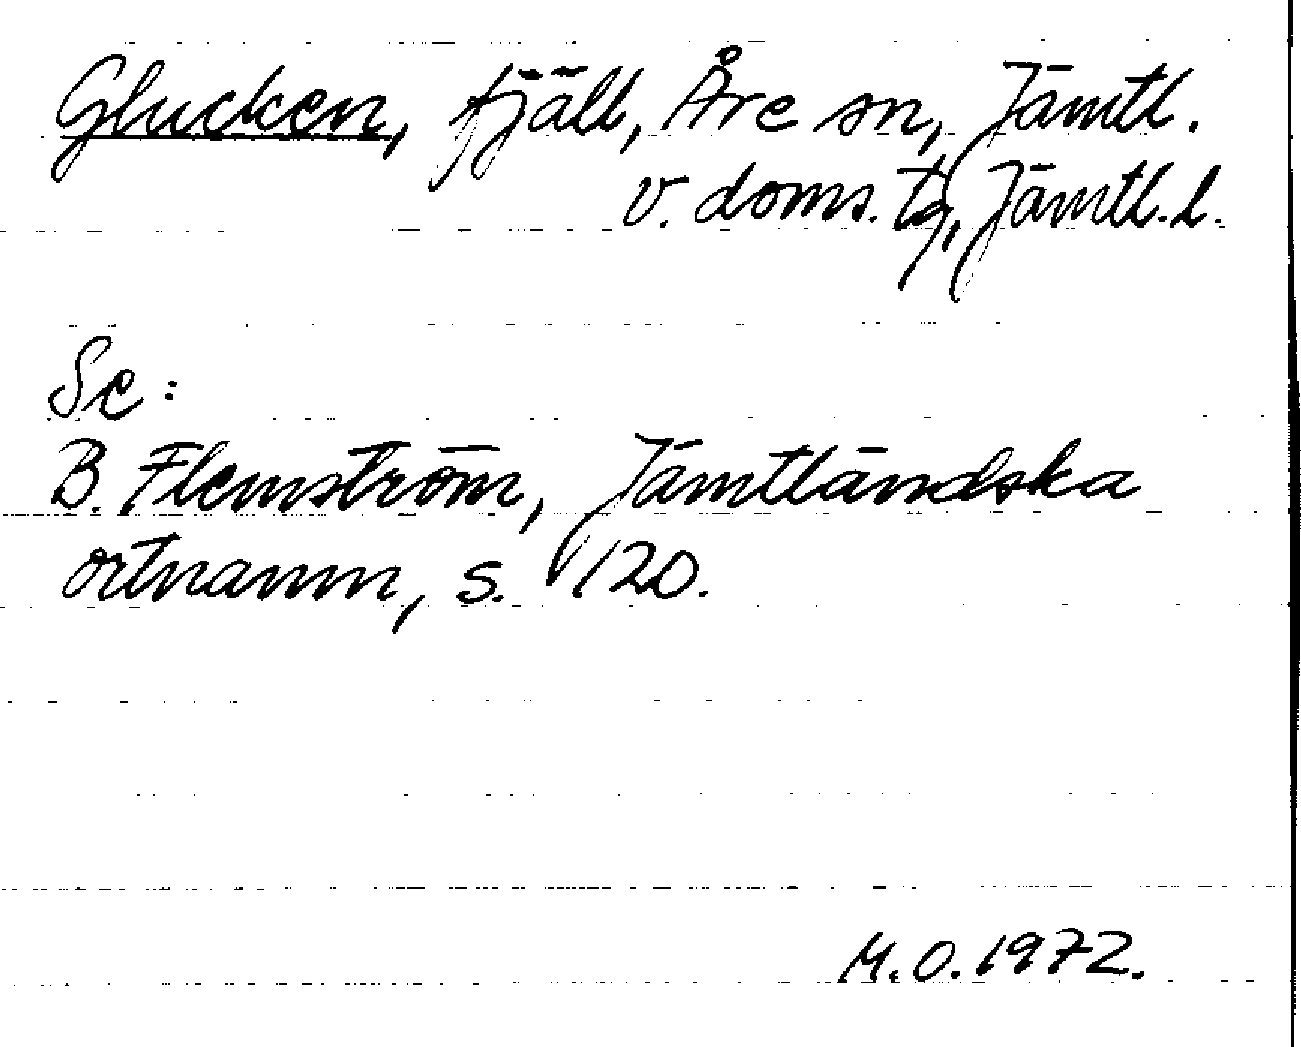 Glucken, fjäll, Åre sn, Jämtl.
v. doms. tg, Jämtl. l.
Se:
B. Flemström, Jämtländska
ortnamn, s. 120.
M.O. 1972.